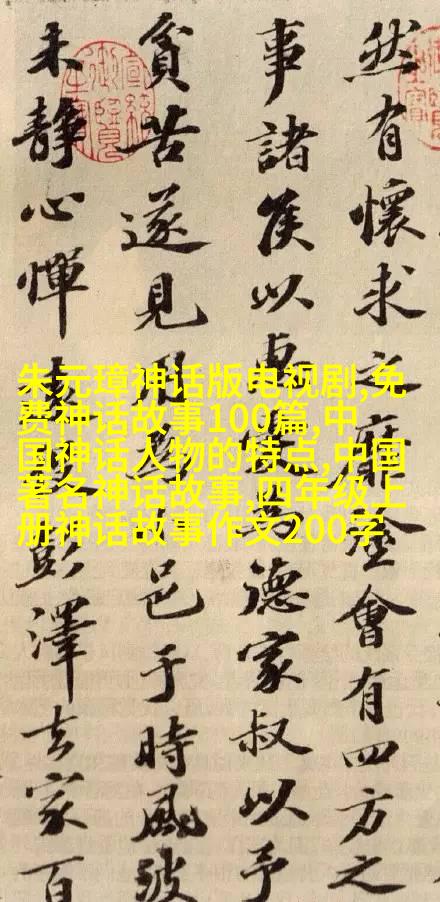 然有懷求之靡會有四方之
事諸侯以為德家叔以予
貧苦遂見邑于時風波
未靜心憚彭澤去家百
朱元璋神话版电视剧,免
费神话故事100篇,中
国神话人物的特点,中国
著名神话故事,四年级上
册神话故事作文200字